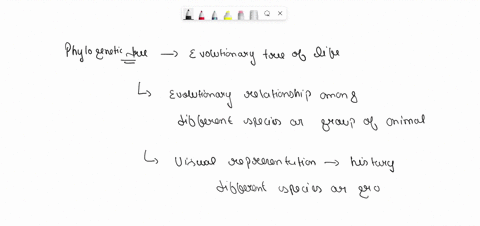 Phylogenetic tree → Evolutionary tree of life
↳ Evolutionary relationship among
different species or group of animal
↳ Visual representation → history
different species or gro